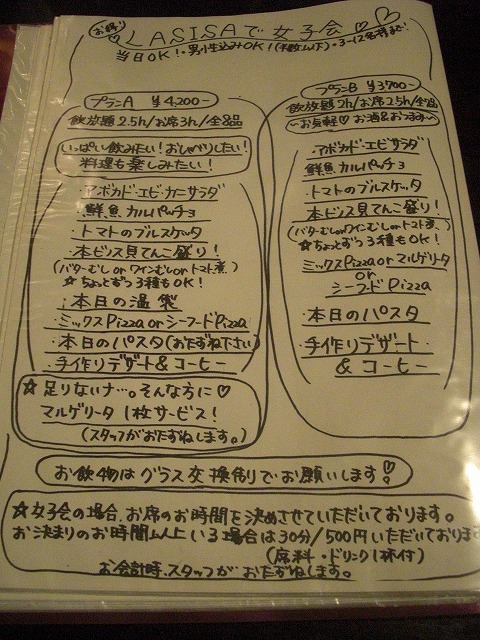 お得!
LASISAで女子会
当日OK!・男性込みOK!(半数以下)・3〜12名様まで!
プランA ¥4,200-
飲放題 2.5h/お席3h/全8品
いっぱい飲みたい!おしゃべりしたい!
料理も楽しみたい!
・アボカド・エビ・カニサラダ
・鮮魚カルパッチョ
・トマトのブルスケッタ
・本ビノス貝てんこ盛り!
(バターむし or ワインむし or トマト煮)
☆ちょっとずつ3種もOK!
・本日の温製
・ミックスPizza or シーフードPizza
・本日のパスタ(おたずね下さい)
・手作りデザート&コーヒー
☆足りないナ…。そんな方に♡
マルゲリータ1枚サービス!
(スタッフがおたずねします。)
プランB ¥3700-
飲放題2h/お席2.5h/全8品
〜お気軽♡お酒&おつまみ〜
アボカド・エビサラダ
鮮魚カルパッチョ
・トマトのブルスケッタ
本ビノス貝てんこ盛り!
(バターむし or ワインむし or トマト煮、)
☆ちょっとずつ3種もOK!
ミックスPizza or マルゲリータ
or
シーフードPizza
・本日のパスタ
・手作りデザート
& コーヒー
お飲み物はグラス交換制りでお願いします!
☆女子会の場合、お席のお時間を決めさせていただいております。
お決まりのお時間以上いる場合は30分/500円いただいております
(席料・ドリンク1杯付)
お会計時、スタッフがおたずねします。